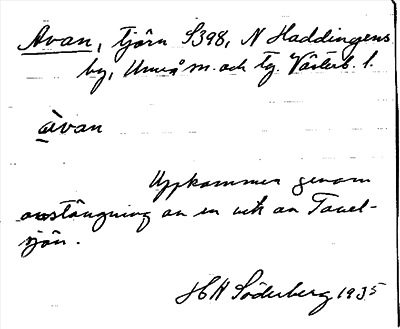 Avan, tjärn S398, N Haddingens
by, Umeå m. och tg. Västerb. l.
àvan
Uppkommen genom
avstängning av en vik av Tavel-
sjön.
H H Söderberg 1935